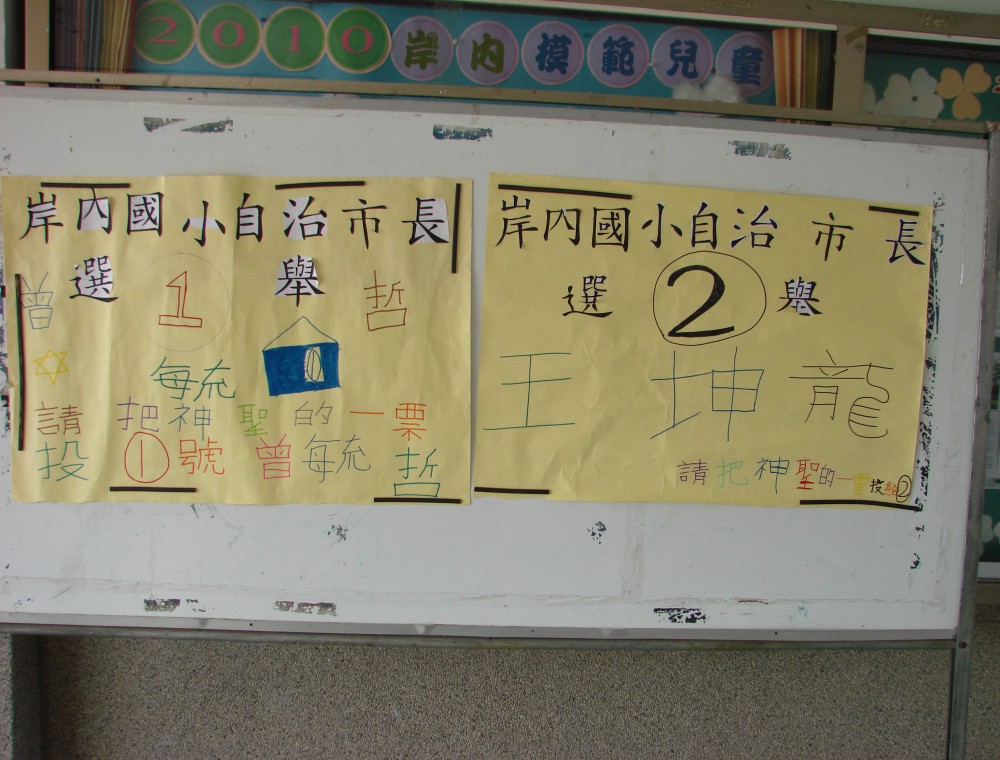 2010岸內模範兒童
岸內國小自治市長
選 1 舉
曾 毓 哲
請把神聖的一票
投①號曾毓哲
岸內國小自治市長
選 2 舉
王坤龍
請把神聖的一票投給②